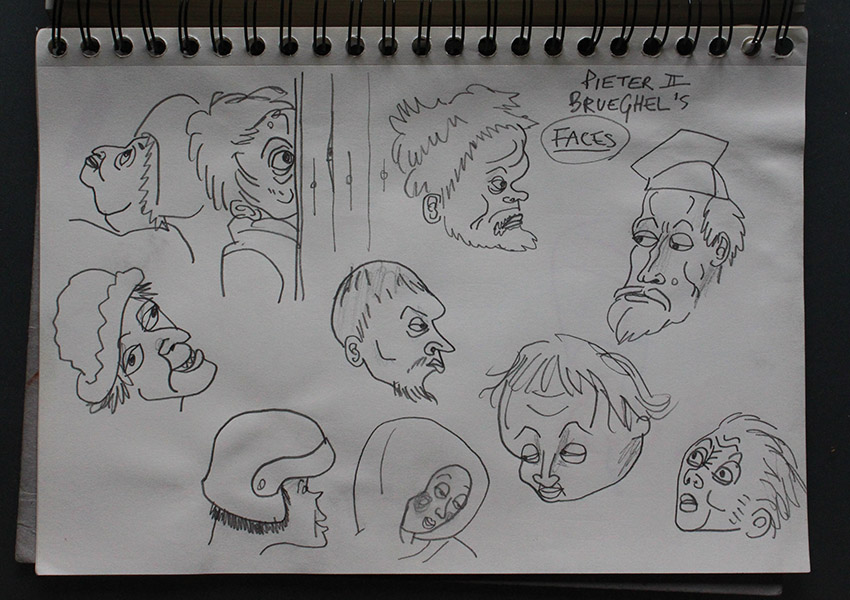 PIETER II
BRUEGHEL'S
FACES